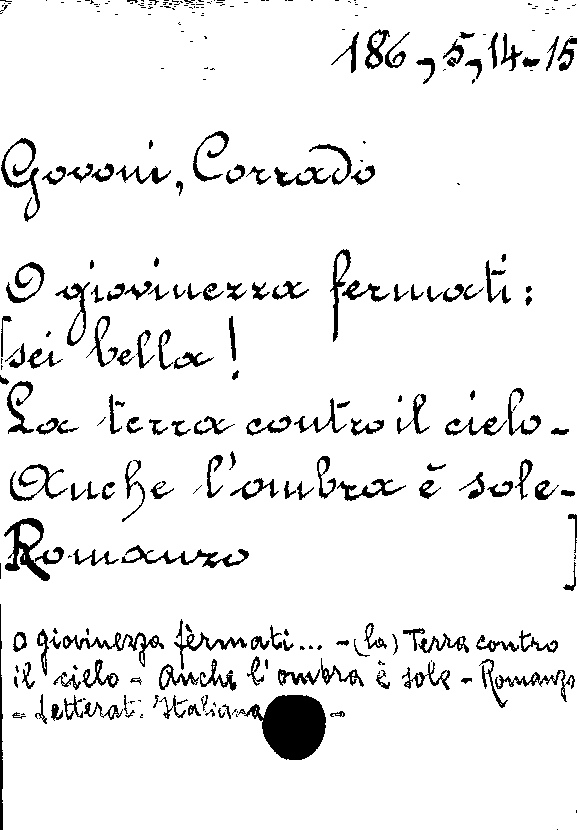 186, 5, 14-15
Govoni, Corrado
O giovinezza fermati:
[sei bella!
La terra contro il cielo-
Anche l'ombra è sole-
Romanzo ]
O giovinezza fèrmati... - (la) Terra contro
il cielo - Anche l'ombra è sole - Romanzo
- Letterat. Italiana -